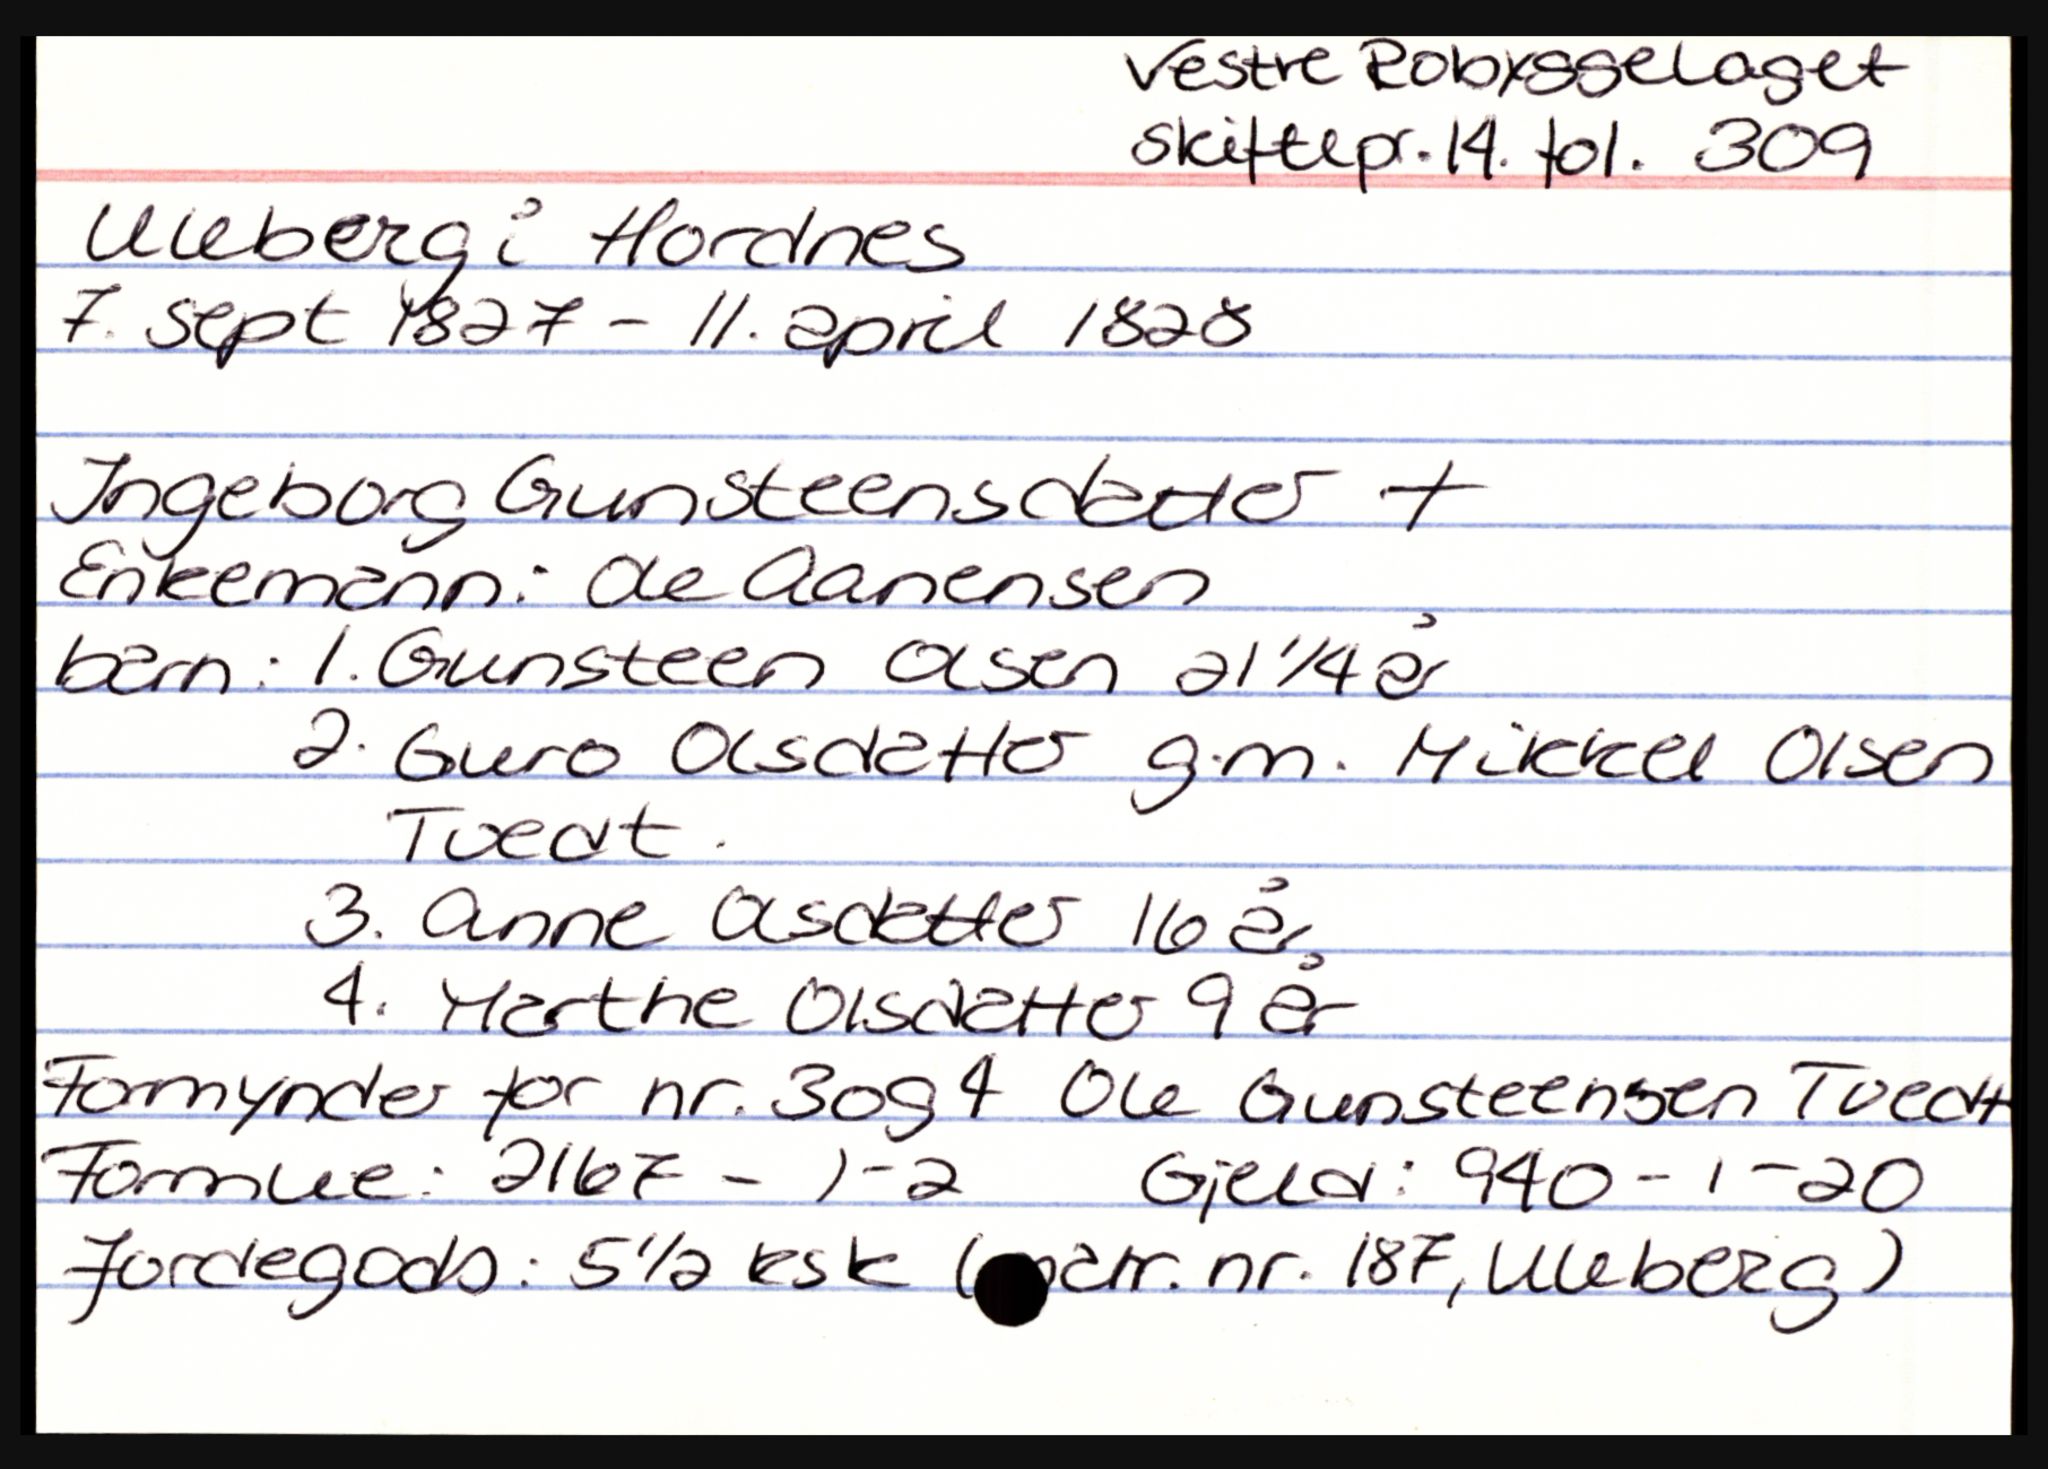 Vestre Robyggelaget
Skiftepr. 14. fol. 309
Uleberg i Hordnes
7. sept 1827 - 11. april 1828
Ingeborg Gunsteensdatter +
Enkemann: Ole Aanensen
barn: 1. Gunsteen Olsen 21 1/4 år
2. Guro Olsdatter g.m. Mikkel Olsen
Tvedt.
3. Anne Olsdatter 16 år
4. Marthe Olsdatter 9 år
Formynder for nr. 3 og 4 Ole Gunsteensen Tvedt
Formue: 2167 - 1 - 2 Gjeld: 940 - 1 - 20
Jordegods: 5 1/2 ksk (matr. nr. 187, Uleberg)